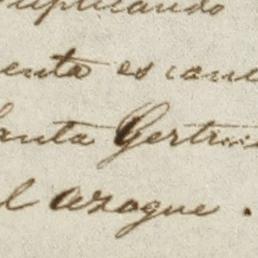 uplicando
enta es cane
Santa Gertru
el azogue.